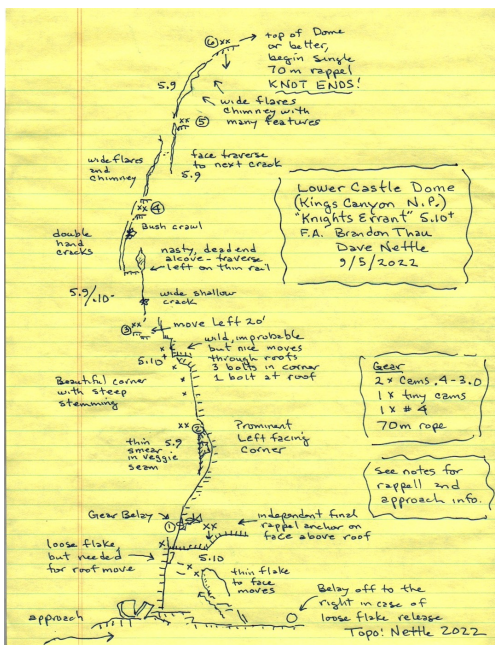 ⑥ xx → top of Dome
or better,
begin single
70 m rappel
KNOT ENDS!
5.9
wide flares
chimney with
many features
xx ⑤
wide flares
and
chimney
face traverse
to next crack
5.9
xx ④
Bush crawl
double
hand
cracks
nasty, dead end
alcove - traverse
left on thin rail
Lower Castle Dome
(Kings Canyon N.P.)
"Knights Errant" 5.10+
F.A. Brandon Thau
Dave Nettle
9/5/2022
5.9/.10-
wide shallow
crack
③ xx
move Left 20'
wild, improbable
but nice moves
through roots
3 bolts in corner
1 bolt at roof
5.10+
x
x
x
Beautiful corner
with steep
stemming
Gear
2 x Cams .4-3.0
1 x tiny cams
1 x # 4
70m rope
xx ②
Prominent
Left facing
Corner
thin 5.9
smear
in veggie
seam
see notes for
rappell and
approach info.
Gear Belay
①
xx
independent final
rappel anchor on
face above roof
loose flake
but needed
for roof move
x
5.10
x
x
thin flake
to face
moves
Belay off to the
right in case of
loose flake release
approach
Topo: Nettle 2022